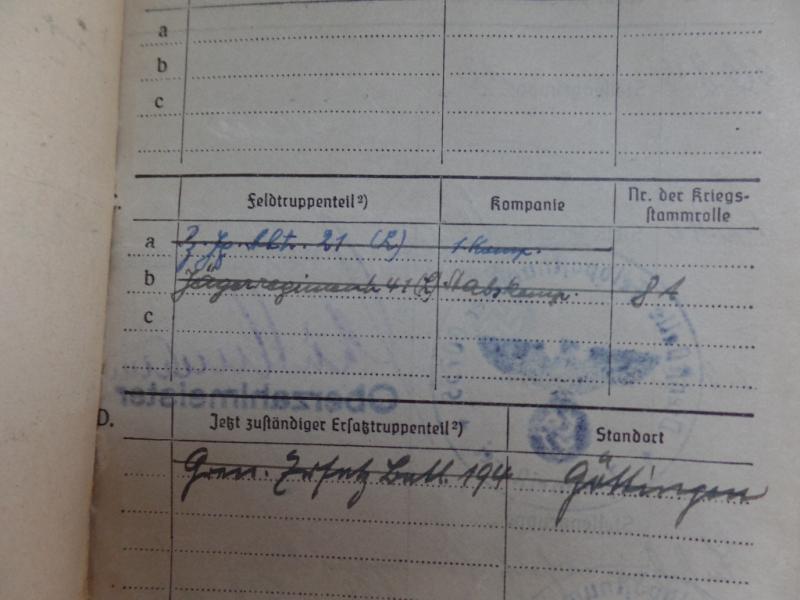 a
b
c
C.
Feldtruppenteil²) Kompanie Nr. der Kriegs-
stammrolle
a 21 (L) 1. Komp.
b Jägerregiment 41 (L) Stabskomp.
c
Oberzahlmeister
D. Jetzt zuständiger Ersatztruppenteil²) Standort
Gren. Ersatz Batl. 194 Göttingen